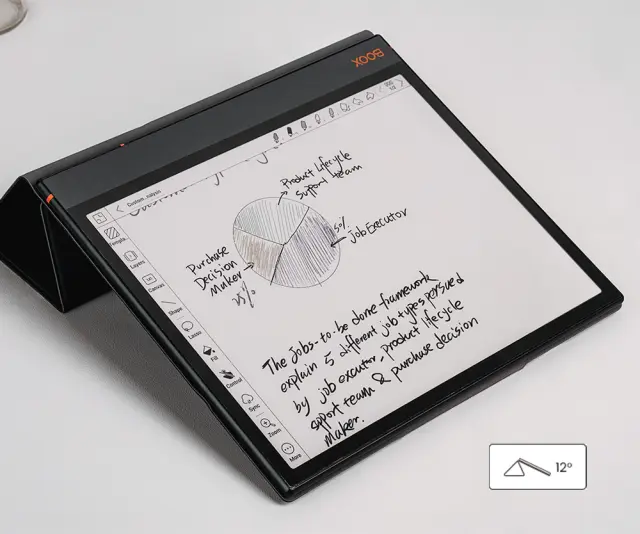 BOOX
Product Lifecycle
support team
50%
Job Executor
Purchase
Decision
Maker
25%
The Jobs-to be done framework
explain 5 different job types persued
by job excutor, product lifecycle
spport team & purchase decision
maker.
Layers
Canvas
Shape
Lasso
Fill
Control
Sync
Zoom
More
12°